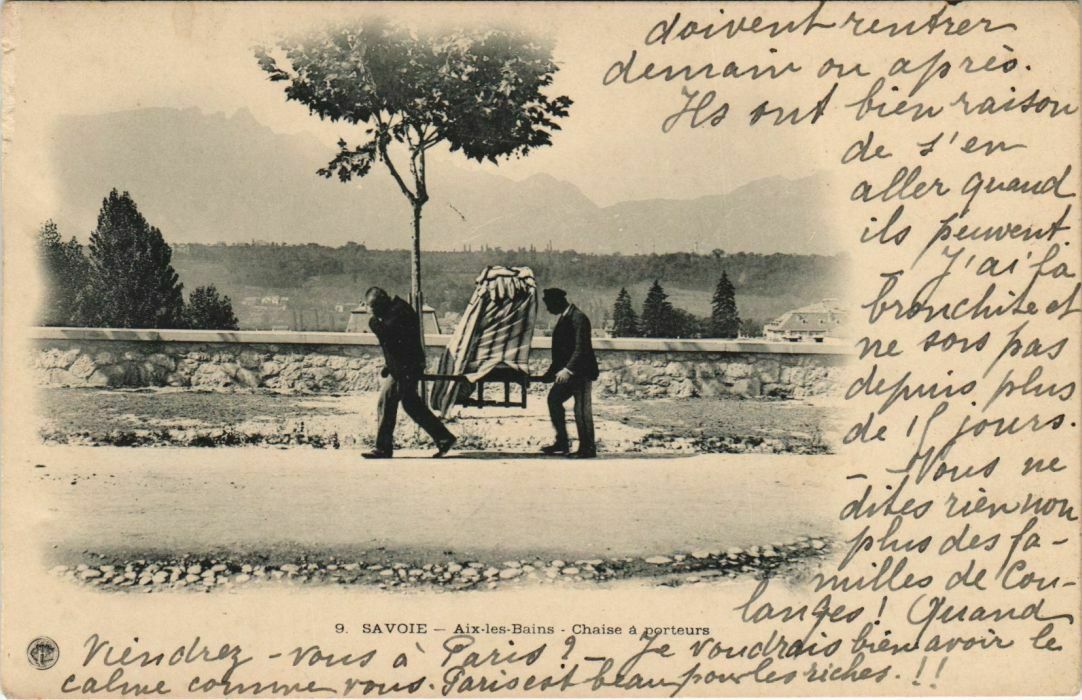 doivent rentrer
demain ou après.
Ils ont bien raison
de s'en
aller quand
ils peuvent.
J'ai la
bronchite et
ne sors pas
depuis plus
de 15 jours.
— Vous ne
dites rien non
plus des fa-
milles de Cou-
langes! Quand
9. SAVOIE — Aix-les-Bains - Chaise à porteurs
Viendrez-vous à Paris? — Je voudrais bien avoir le
calme comme vous. Paris est beau pour les riches.!!